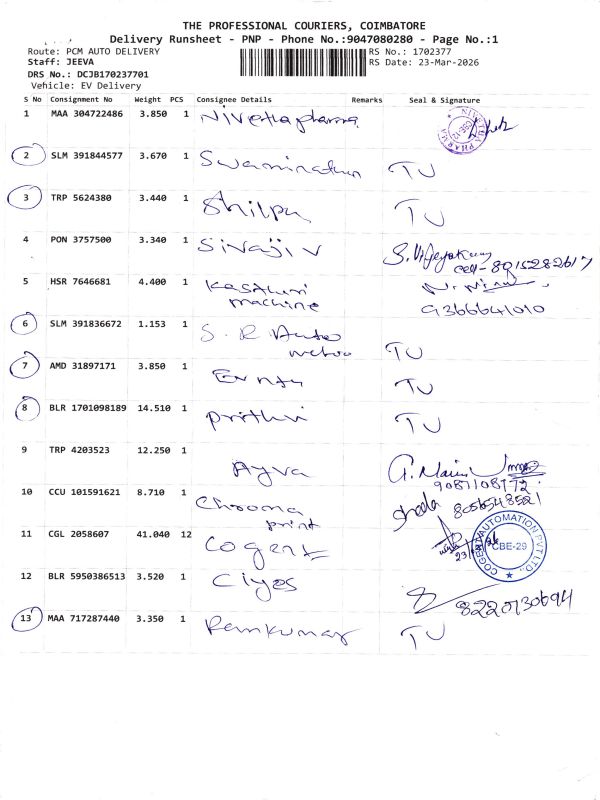 THE PROFESSIONAL COURIERS, COIMBATORE
Delivery Runsheet - PNP - Phone No.:9047080280 - Page No.:1
Route: PCM AUTO DELIVERY RS No.: 1702377
Staff: JEEVA RS Date: 23-Mar-2026
DRS No.: DCJB170237701
Vehicle: EV Delivery
S No Consignment No Weight PCS Consignee Details Remarks Seal & Signature
1 MAA 304722486 3.850 1 Nivetha pharma NIVETHA PHARMA
2 SLM 391844577 3.670 1 Swaminathan TU
3 TRP 5624380 3.440 1 Shilpa TU
4 PON 3757500 3.340 1 Sivaji V S. Vijayakumar
cell-8015282617
5 HSR 7646681 4.400 1 Kasthuri
machine
9366641010
6 SLM 391836672 1.153 1 S. R Auto
TU
7 AMD 31897171 3.850 1 TU
8 BLR 1701098189 14.510 1 prithvi TU
9 TRP 4203523 12.250 1 Ayva
10 CCU 101591621 8.710 1 Chroma
print
8056548521
11 CGL 2058607 41.040 12 Cogent COGENT AUTOMATION PVT LTD., CBE-29
12 BLR 5950386513 3.520 1 Ciyos 8220130694
13 MAA 717287440 3.350 1 Ramkumar TU